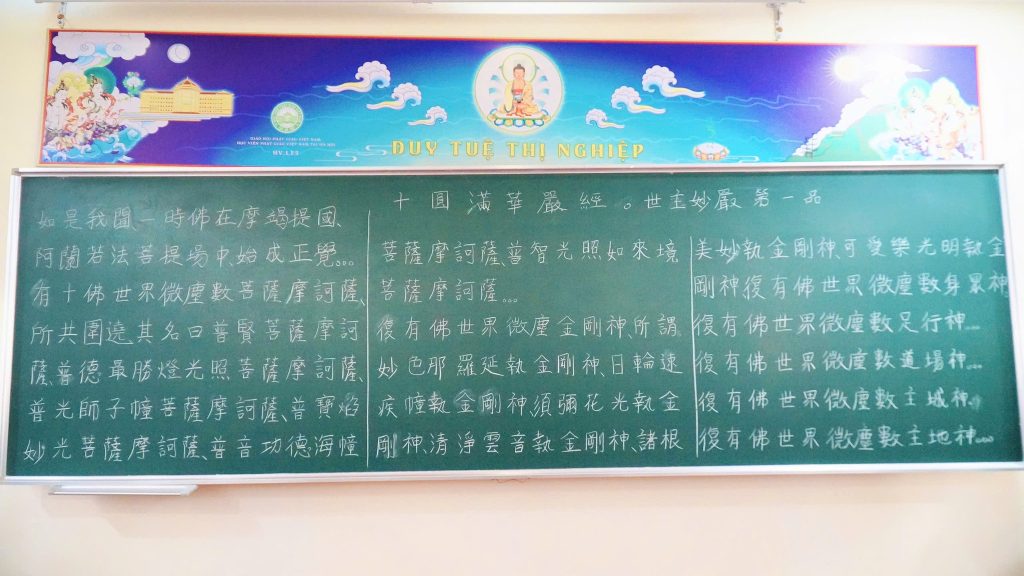 GIÁO HỘI PHẬT GIÁO VIỆT NAM
HỌC VIỆN PHẬT GIÁO VIỆT NAM TẠI HÀ NỘI
DUY TUỆ THỊ NGHIỆP
十圓滿華嚴經。世主妙嚴第一品
如是我聞、一時佛在摩竭提國、
阿蘭若法菩提場中、始成正覺…
有十佛世界微塵數菩薩摩訶薩、
所共圍遶其名曰普賢菩薩摩訶
薩、普德最勝燈光照菩薩摩訶薩、
普光師子幢菩薩摩訶薩、普寶焰
妙光菩薩摩訶薩、普音功德海幢
菩薩摩訶薩、普智光照如來境
菩薩摩訶薩…
復有佛世界微塵金剛神、所謂
妙色那羅延執金剛神、日輪速
疾幢執金剛神、須彌花光執金
剛神、清淨雲音執金剛神、諸根
美妙執金剛神、可愛樂光明執金
剛神復有佛世界微塵數身累神
復有佛世界微塵數足行神…
復有佛世界微塵數道場神…
復有佛世界微塵數主城神…
復有佛世界微塵數主地神…